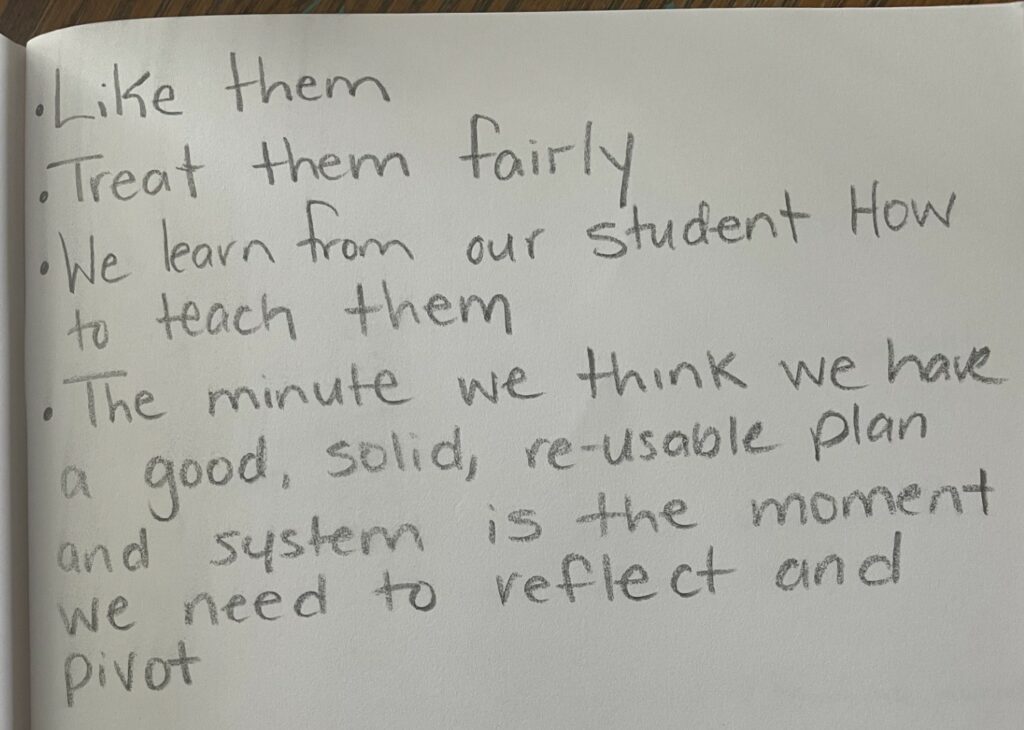 · Like them
· Treat them fairly
· We learn from our student How
to teach them
· The minute we think we have
a good, solid, re-usable plan
and system is the moment
we need to reflect and
pivot